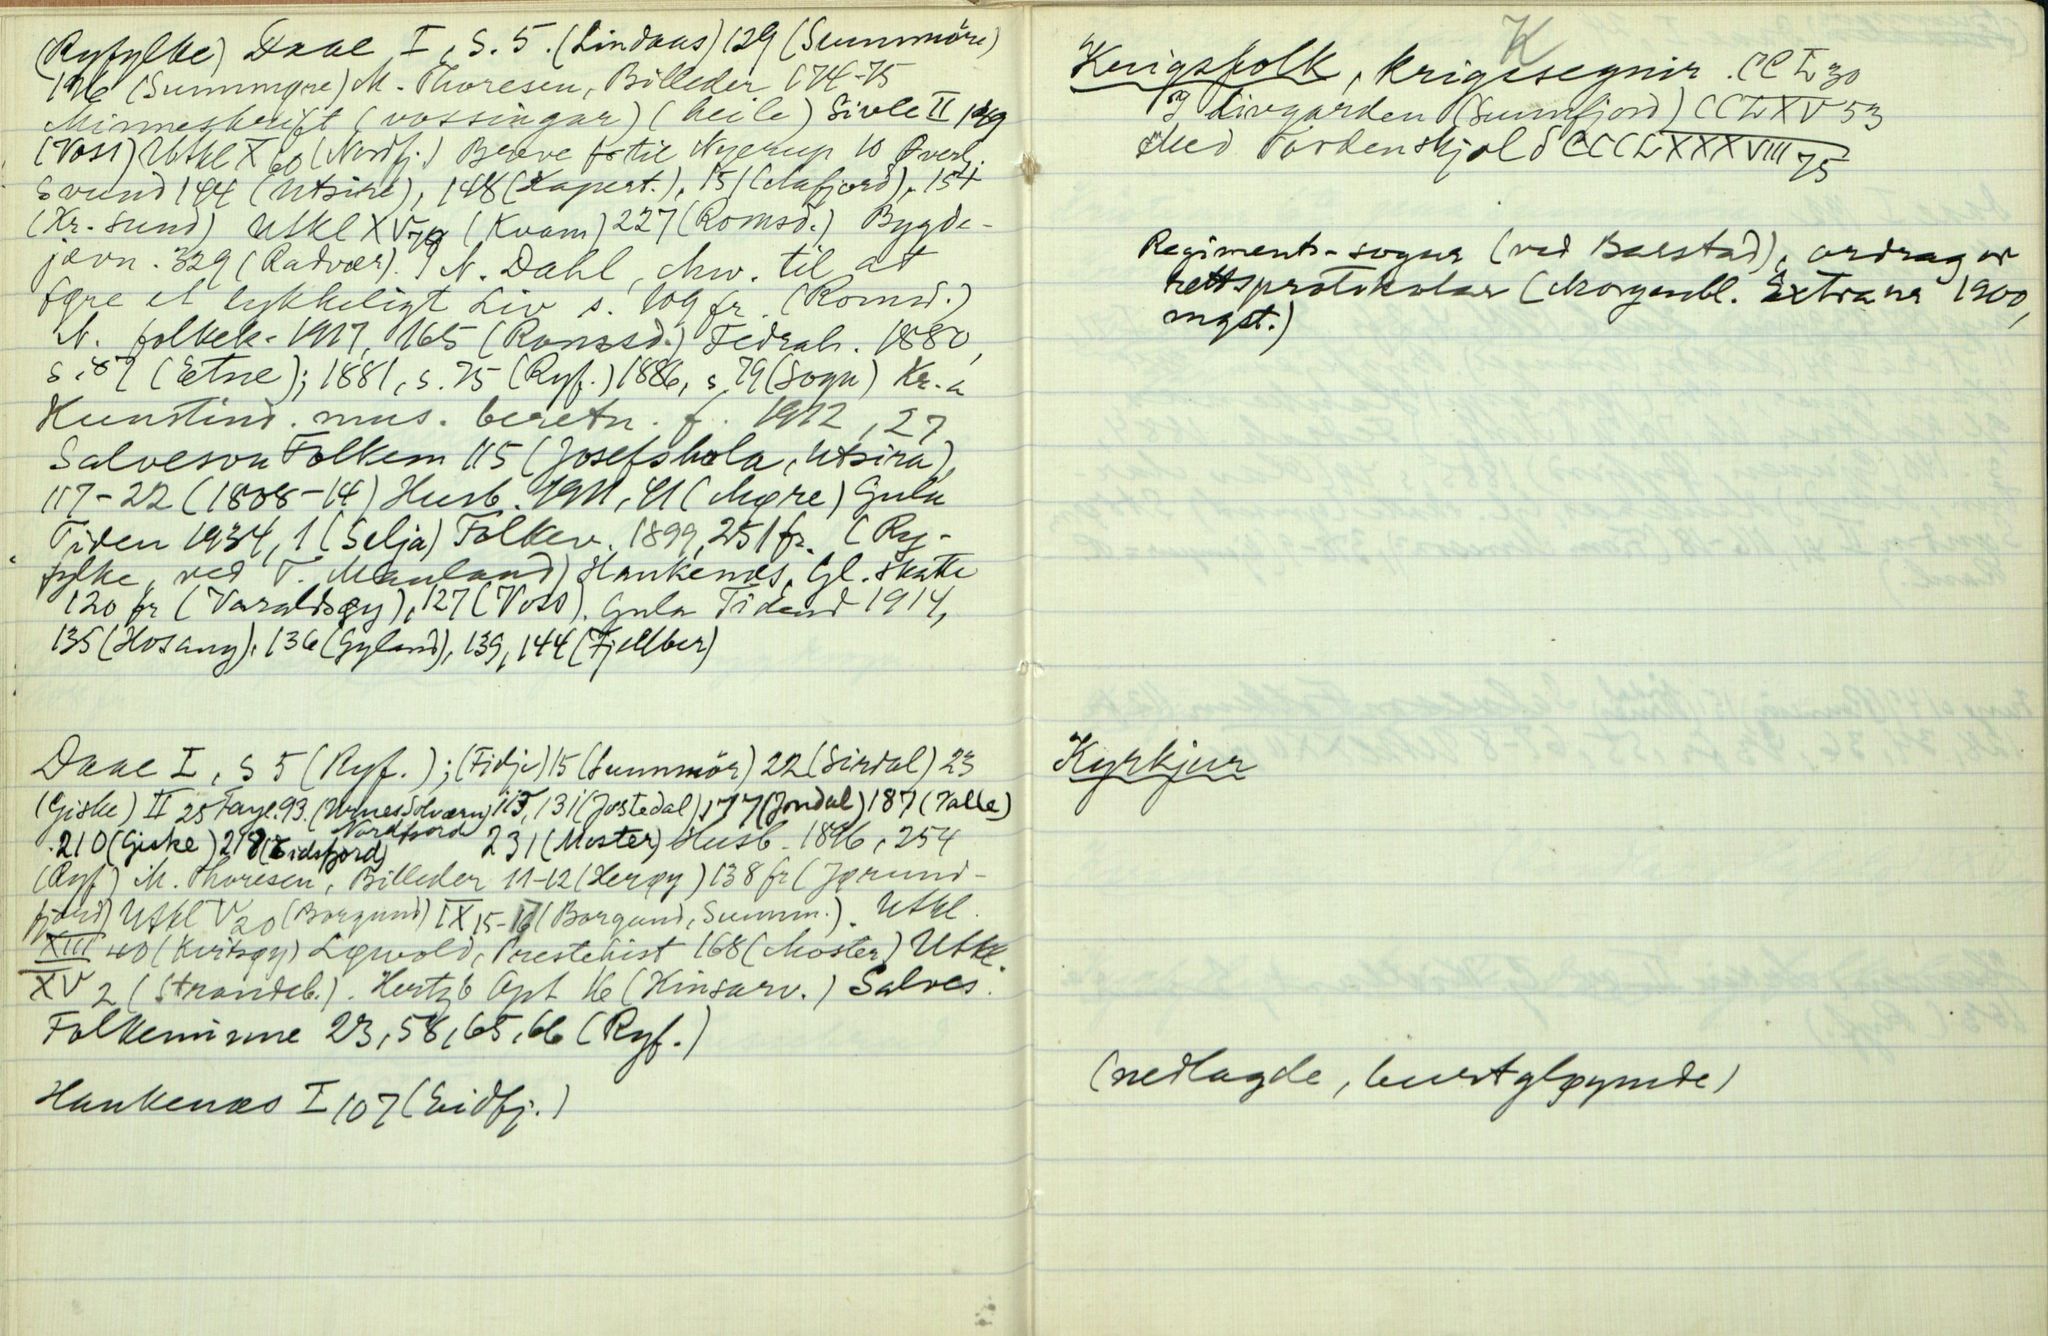 (Ryfylke) Daae I, S. 5. (Lindaas) 129 (Sunnmöre)
196 (Sunnmøre) M. Thoresen, Billeder 174-75
Minneskrift (vossingar) (heile) Sivle II 129
(Voss) Utkl X 60 (Nordf.) Breve til Nyerup 10 Øverl.
Svund 144 (Utsire), 148 (Kapert.), 151 (Mafjord), 154
(Kr.sund) Utkl XV 79 (Kvam) 227 (Romsd.) Bygde-
jevn. 329 (Radvær). N. Dahl, Anv. til at
føre et lykkeligt Liv s. 109 fr. (Romsd.)
N. folkek. 1917, 165 (Romsd.) Fedrah. 1880,
s. 87 (Etne); 1881, s. 75 (Ryf.) 1886, s 79 (Sogn) Kr.a
Kunstind. mus. beretn. f. 1912, 27
Salveson Folkem 115 (Josefshola, Utsira),
117-22 (1808-14) Husb. 1911, 41 (Møre) Gula
Tiden 1934, 1 (Selja) Folkev. 1899, 251 fr. (Ry-
fylke, ved T. Mauland) Haukenæs, Gl. skatte
120 fr (Varaldsøy), 127 (Voss). Gula Tidend 1914,
135 (Hosang), 136 (Gyland), 139, 144 (Fjellber)
Daae I, S 5 (Ryf.); (Fidje) 15 (Sunnmör) 22 (Sirdal) 23
(Giske) II 25 Faye 93. (Urnes Solvorn) 115, 131 (Jostedal) 177 (Jondal) 187 (Valle)
210 (Giske) 218 (Eidsfjord Nordfjord 231 (Moster) Husb. 1896, 254
(Ryf) M. Thoresen, Billeder 11-12 (Herøy) 138 fr (Jørund-
fjord) Utkl V 20 (Borgund) IX 15-16 (Borgund, Sunnm.). Utkl.
XIII 40 (Kvitsøy) Løvold, Prestehist 168 (Moster) Utkl.
XV 2 (Strandeb.). Hertzb Opt 16 (Kinsarv.) Salves.
Folkeminne 23, 58, 65, 66 (Ryf.)
Haukenæs I 107 (Eidfj.)
K
Krigsfolk, krigssegnir. CCL 30
og Livgarden (Sunnfjord) CCLXV 53
Med Tordenskjold CCCLXXXVIII 75
Regiments-sogur (ved Barstad), ordrag or
rettsprotokolar (Morgenbl. Extranr 1900,
mgst.)
Kyrkjur
(nedlagde, burtgløymde)